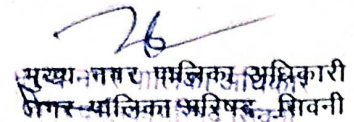 मुख्य नगर पालिका अधिकारी
नगर पालिका परिषद, सिवनी